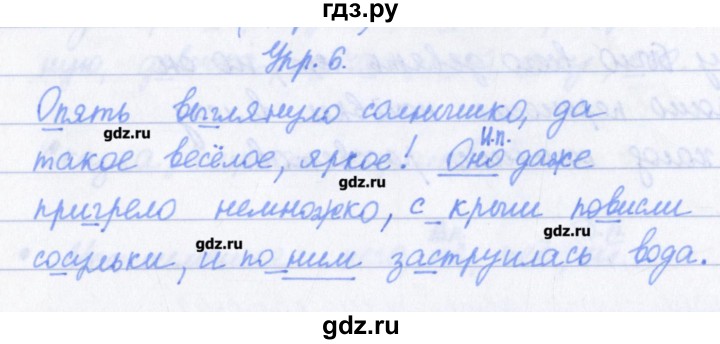 гдз.ру
Упр. 6.
Опять выглянуло солнышко, да
gdz.ru
И.п.
такое весёлое, яркое! Оно даже
gdz.ru
пригрело немножко, с крыш повисли
gdz.ru gdz.ru
сосульки, и по ним заструилась вода.
gdz.ru